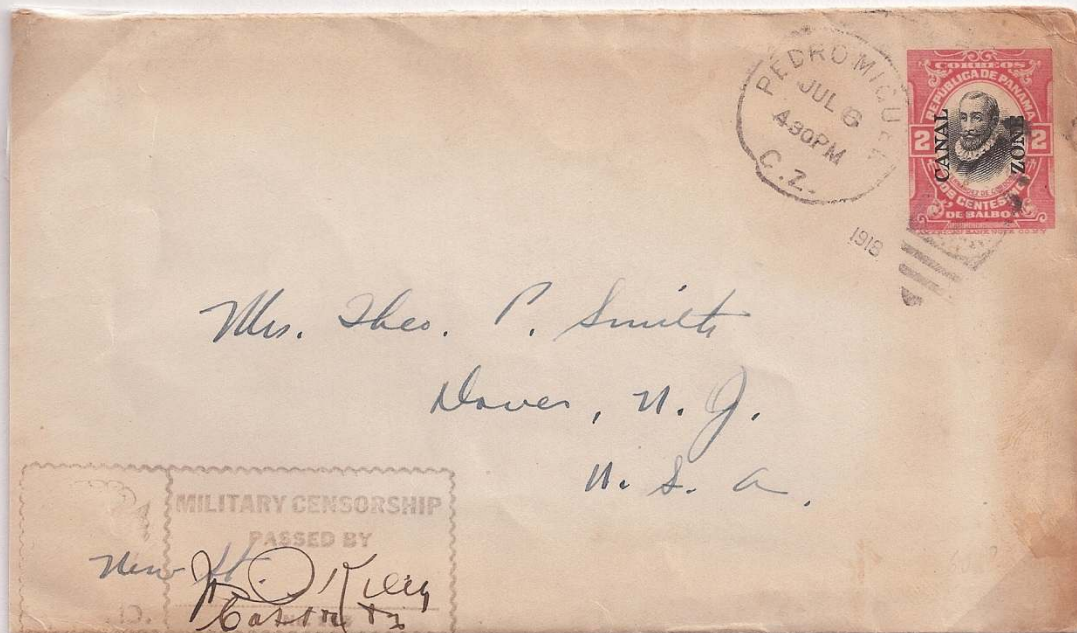 PEDRO MIGUEL
JUL 6
4 30 PM
C.Z.
1918
CORREOS
REPÚBLICA DE PANAMA
2 CANAL ZONE 2
DOS CENTESIMOS
DE BALBOA
Mrs. Theo. P. Smith
Dover, N. J.
U. S. A.
MILITARY CENSORSHIP
PASSED BY